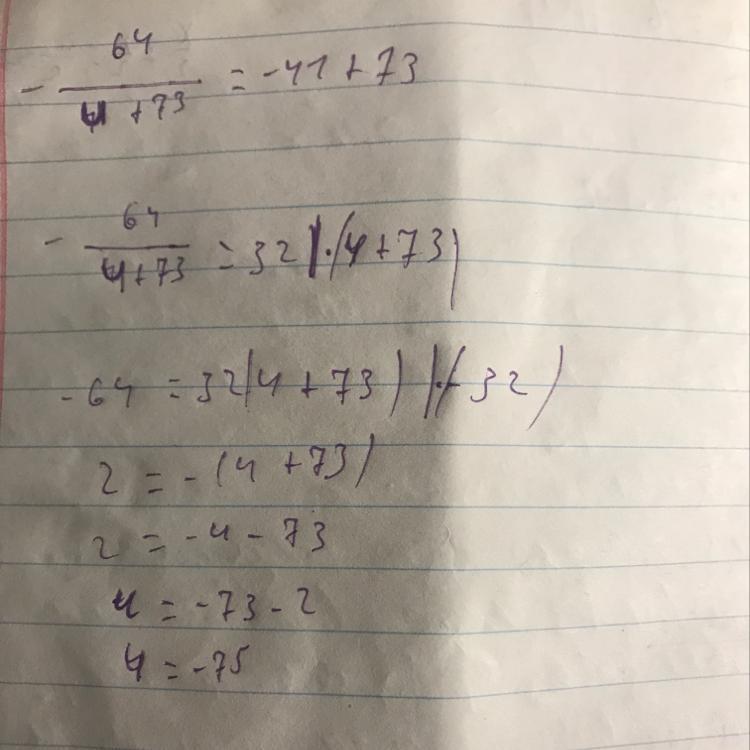 - 64/(y + 73) = -41 + 73
- 64/(y + 73) = 32 |·(y + 73)
-64 = 32(y + 73) |:(-32)
2 = -(y + 73)
2 = -y - 73
y = -73 - 2
y = -75